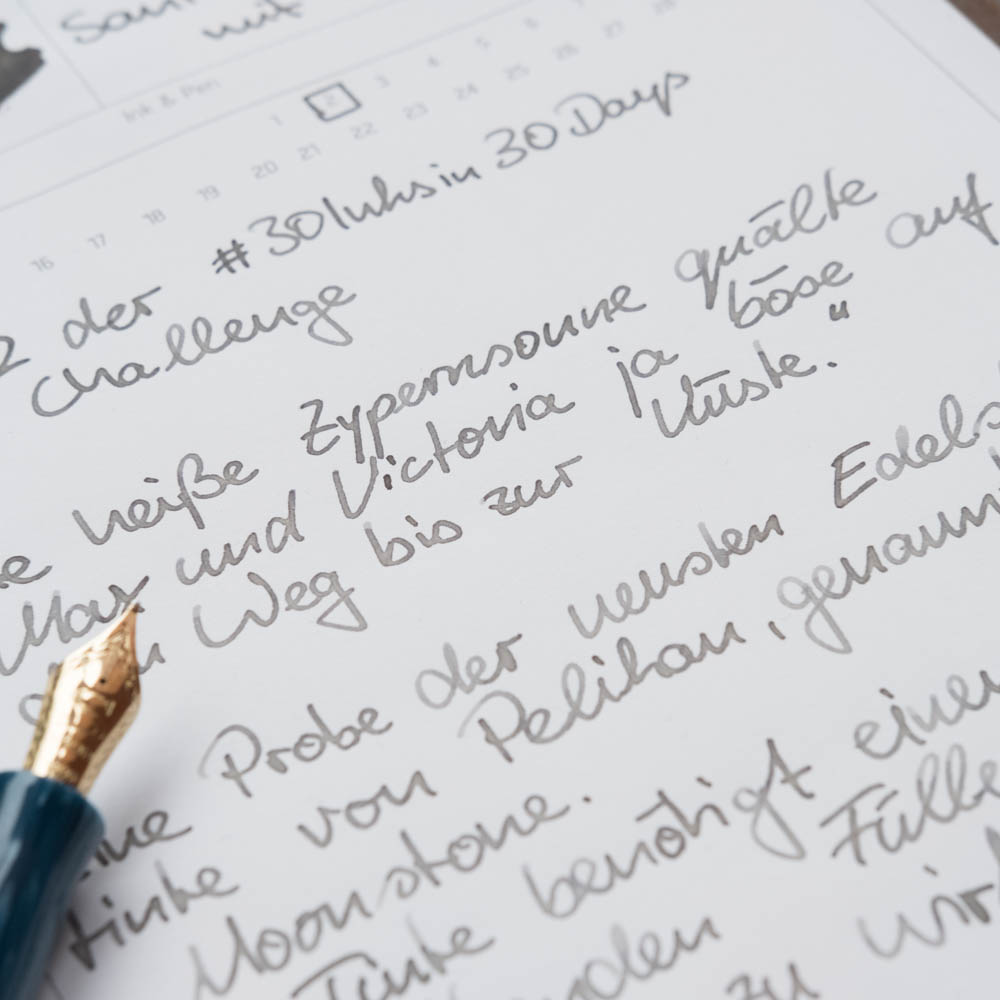 mit
Ink & Pen
1 2 3 4 5
16 17 18 19 20 21 22 23 24 25 26 27 28
2 der #30Inksin30Days
Challenge
heiße Zypernsonne quälte
Max und Victoria ja böse auf
Weg bis zur Küste."
Probe der neusten Edels
tinte von Pelikan, genannt
Moonstone.
Tinte benötigt einen
den Fülle
zu wirk